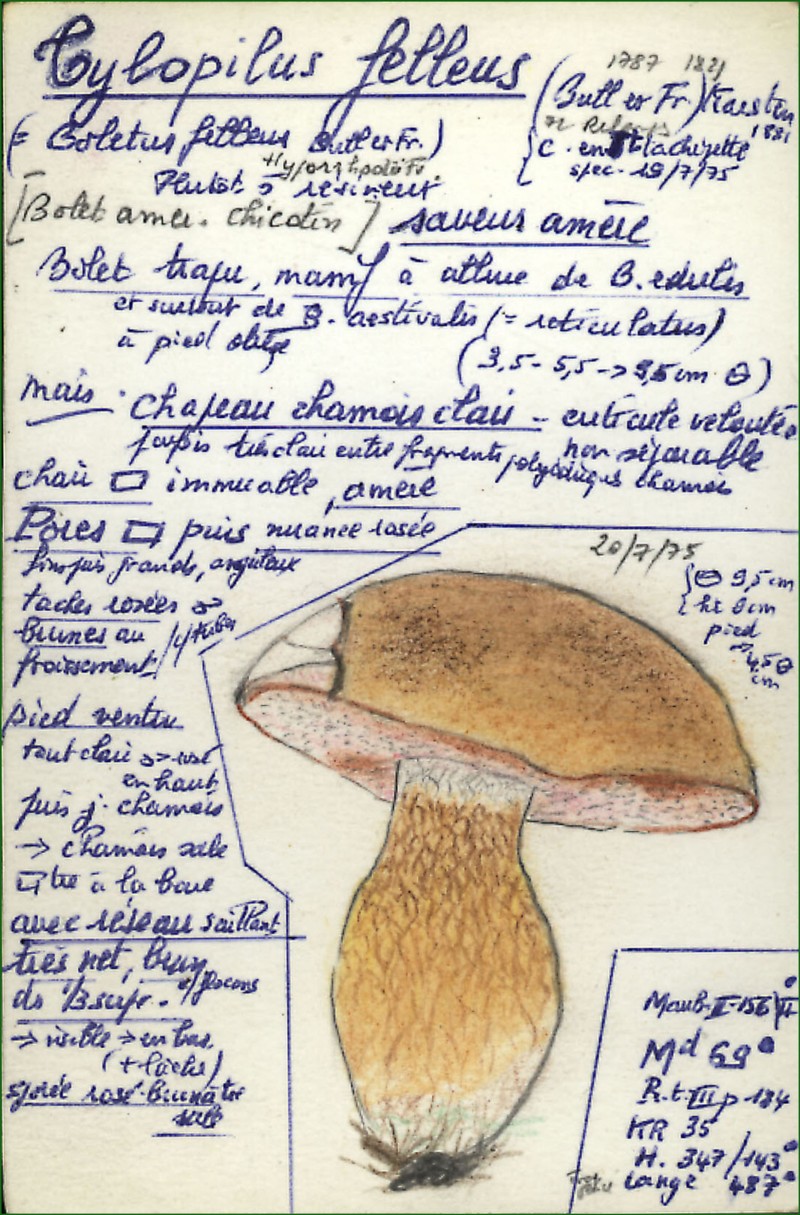 Tylopilus felleus
1787 1821
(Bull ex Fr.) Karsten
1881
(= Boletus felleus Bull ex Fr.)
C. en
spec. 19/7/75
Plutôt
[Bolet amer. chicotin] saveur amère
Bolet trapu, à allure de B. edulis
et surtout de B. aestivalis (= reticulatus)
à pied
(3,5 - 5,5 -> 9,5 cm Θ)
mais chapeau chamois clair - cuticule veloutée
non séparable
puis très clair entre fragments polyédriques chamois
chair □ immuable, amère
Pores □ puis nuance rosée
20/7/75
grands, anguleux
Θ 9,5 cm
ht 9 cm
pied
4,5 Θ
cm
taches rosées
brunes au
froissement
pied ventru
tout clair
en haut
puis j. chamois
-> chamois sale
à la base
avec réseau saillant
très net, brun
flocons
-> en bas
(+ lâche)
sporée rosé-brunâtre
sale
Maub-II-156
Md 69
R.t. III p 184
KR 35
H. 347/143
Lange 487